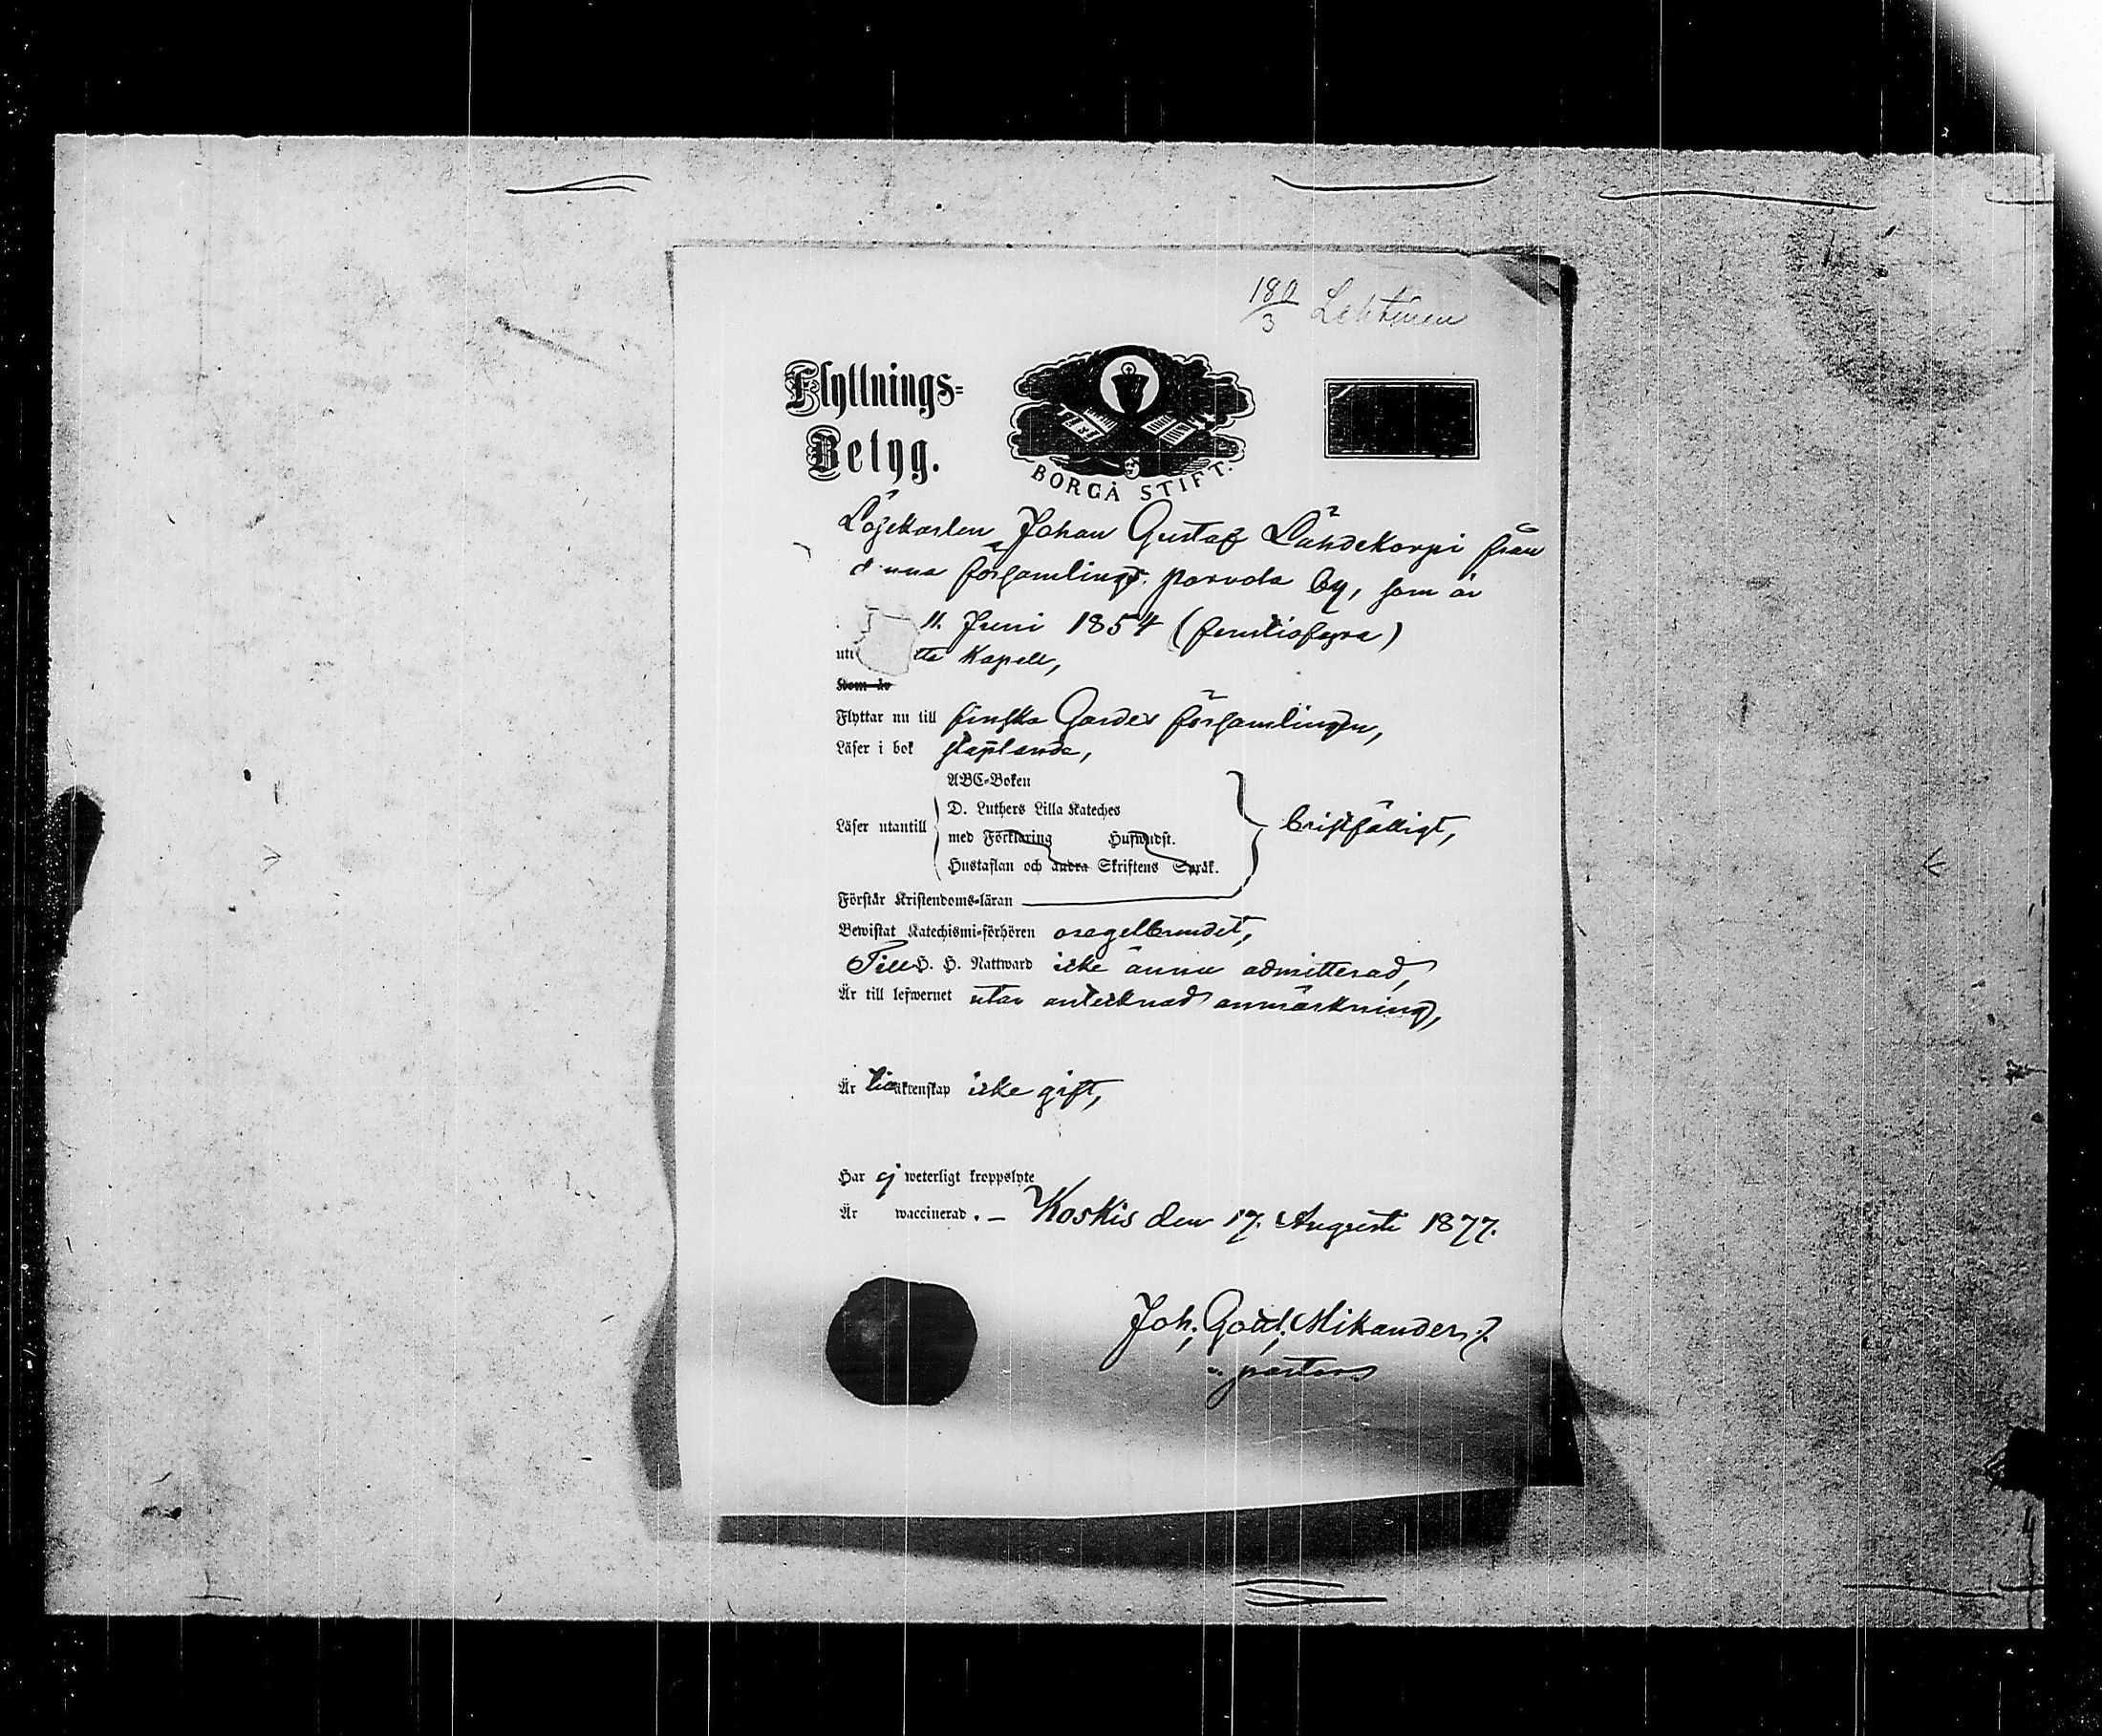 180/3 Lehtinen
Flyttnings=
Betyg.
BORGÅ STIFT.
Löjekarlen Johan Gustaf Lähdekorpi från
denna församlings Porvola by, som är
11. Juni 1854 (femtiofyra)
uti tta Kapell,
Kom är
Flyttar nu till finska Gardes församlingen,
Läser i bok staplande,
ABC-Boken
Läser utantill D. Luthers Lilla Kateches
med Förklaring Hufwudst.
Hustaflan och andra Skriftens Språk.
bristfälligt,
Förstår Kristendoms-läran
Bewistat Katechismi-förhören oregelbundet,
Till H. H. Nattward icke ännu admitterad,
Är till lefwernet utan antecknad anmärkning,
Är till äktenskap icke gift,
Har ej weterligt kroppslyte
Är waccinerad. – Koskis den 17. Augusti 1877.
Joh. Gottl. Mikander
v. pastor